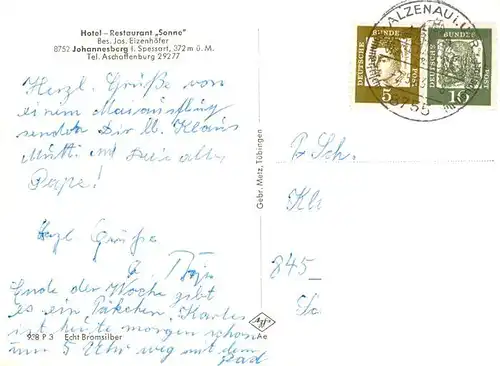 Hotel – Restaurant „Sonne"
Bes. Jos. Eizenhöfer
8752 Johannesberg i. Spessart, 372 m ü. M.
Tel. Aschaffenburg 29277
Herzl. Grüße von
einem Maiausflug
senden Dir lb. Klaus
Mutti und Dein alter
Papa!
Herzl Grüße
Ende der Woche gibt
es ein Päkchen. Karles
ist heute morgen schon
um 5 Uhr weg mit dem
938 P 3 Echt Bromsilber
Gebr. Metz, Tübingen
Agfa
Ae
ALZENAU i. U
8755
DEUTSCHE BUNDESPOST
5
DEUTSCHE BUNDESPOST
10
Sch.
845